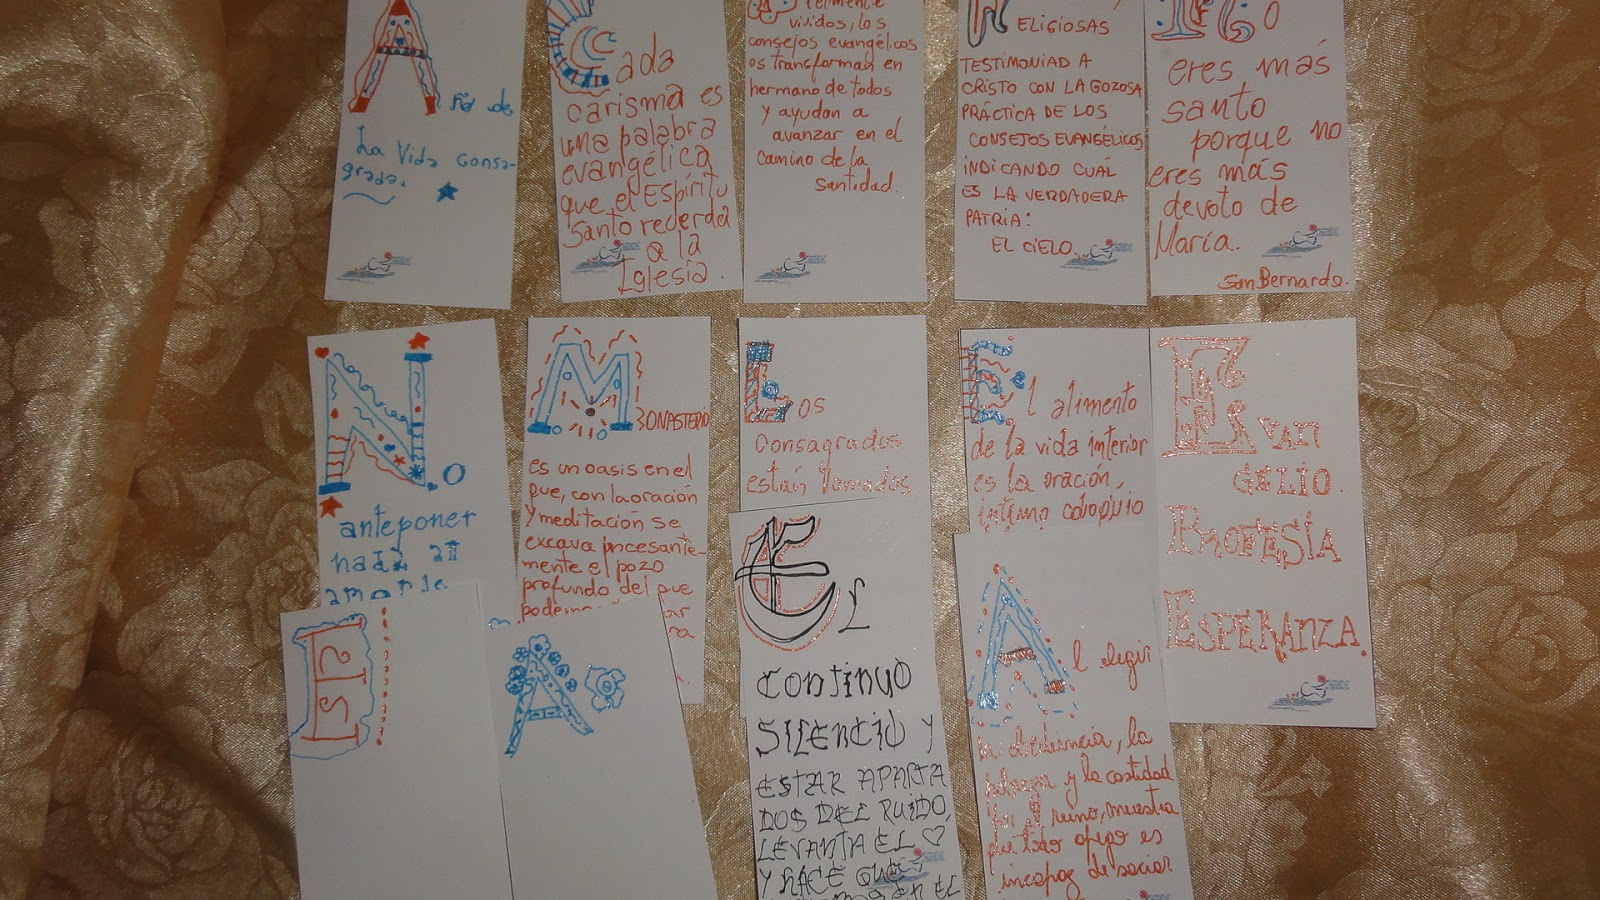 Año de
La Vida Consa-
grada.
Cada
carisma es
una palabra
evangélica
que el Espíritu
Santo recuerda
a la
Iglesia.
vividos, los
consejos evangélicos
os transforman en
hermano de todos
y ayudan a
avanzar en el
camino de la
santidad.
RELIGIOSAS
TESTIMONIAD A
CRISTO CON LA GOZOSA
PRÁCTICA DE LOS
CONSEJOS EVANGÉLICOS
INDICANDO CUÁL
ES LA VERDADERA
PATRIA:
EL CIELO
eres más
santo
porque no
eres más
devoto de
María.
San Bernardo.
N.o
anteponer
nada al
amor de
MONASTERIO
es un oasis en el
que, con la oración
y meditación se
excava incesante-
mente el pozo
profundo del que
Los
consagrados
están llamados
El alimento
de la vida interior
es la oración,
íntimo coloquio
EVAN
GELIO.
PROFESÍA
ESPERANZA.
EL
CONTINUO
SILENCIO Y
ESTAR APARTA
DOS DEL RUIDO,
LEVANTA EL ♡
Y HACE QUE
EL
Al elegir
la obediencia, la
pobreza y la castidad
por el reino, muestra
que todo apego es
incapaz de saciar
A